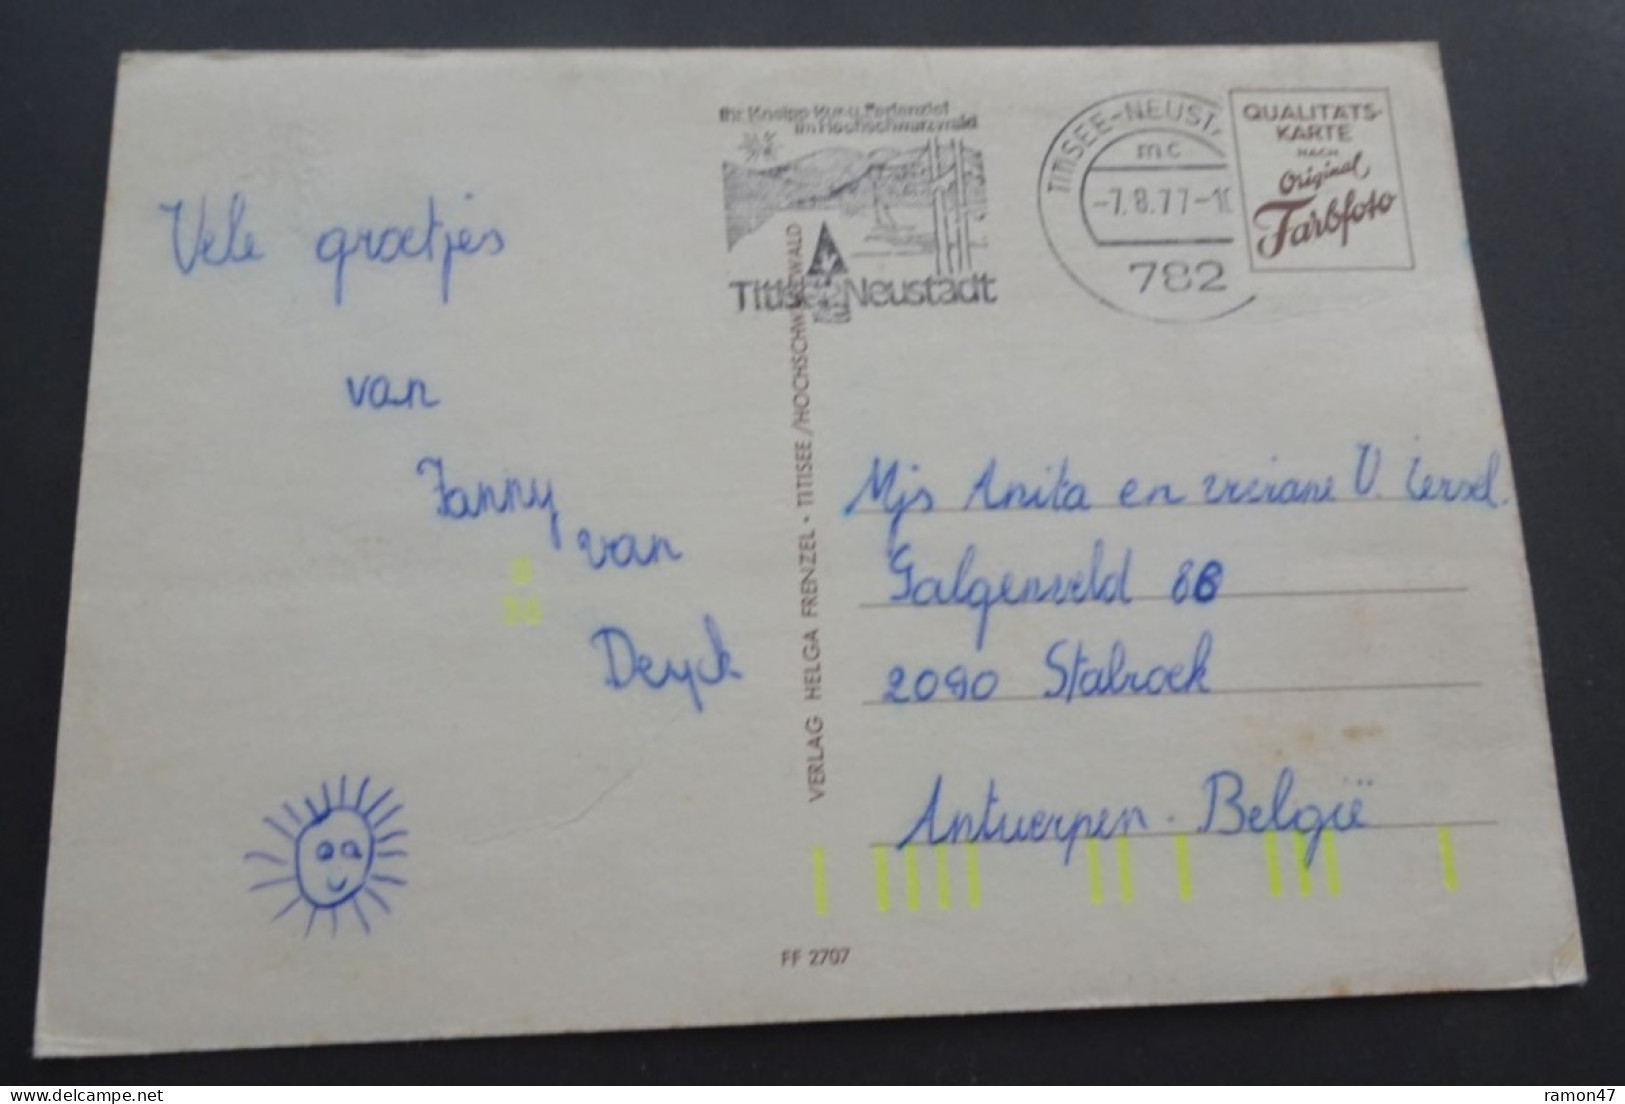 Vele groetjes
van
Fanny
van
Deyck
Ihr Kneipp Kur-u. Ferienziel
im Hochschwarzwald
Titisee Neustadt
TITISEE-NEUST
mc
-7.8.77-1
782
QUALITÄTS-
KARTE
NACH
Original
Farbfoto
VERLAG HELGA FRENZEL · TITISEE/HOCHSCHWARZWALD
Mjs Anita en Viviane V. Iersel.
Galgenveld 86
2090 Stabroek
Antwerpen - België
FF 2707
ramon47